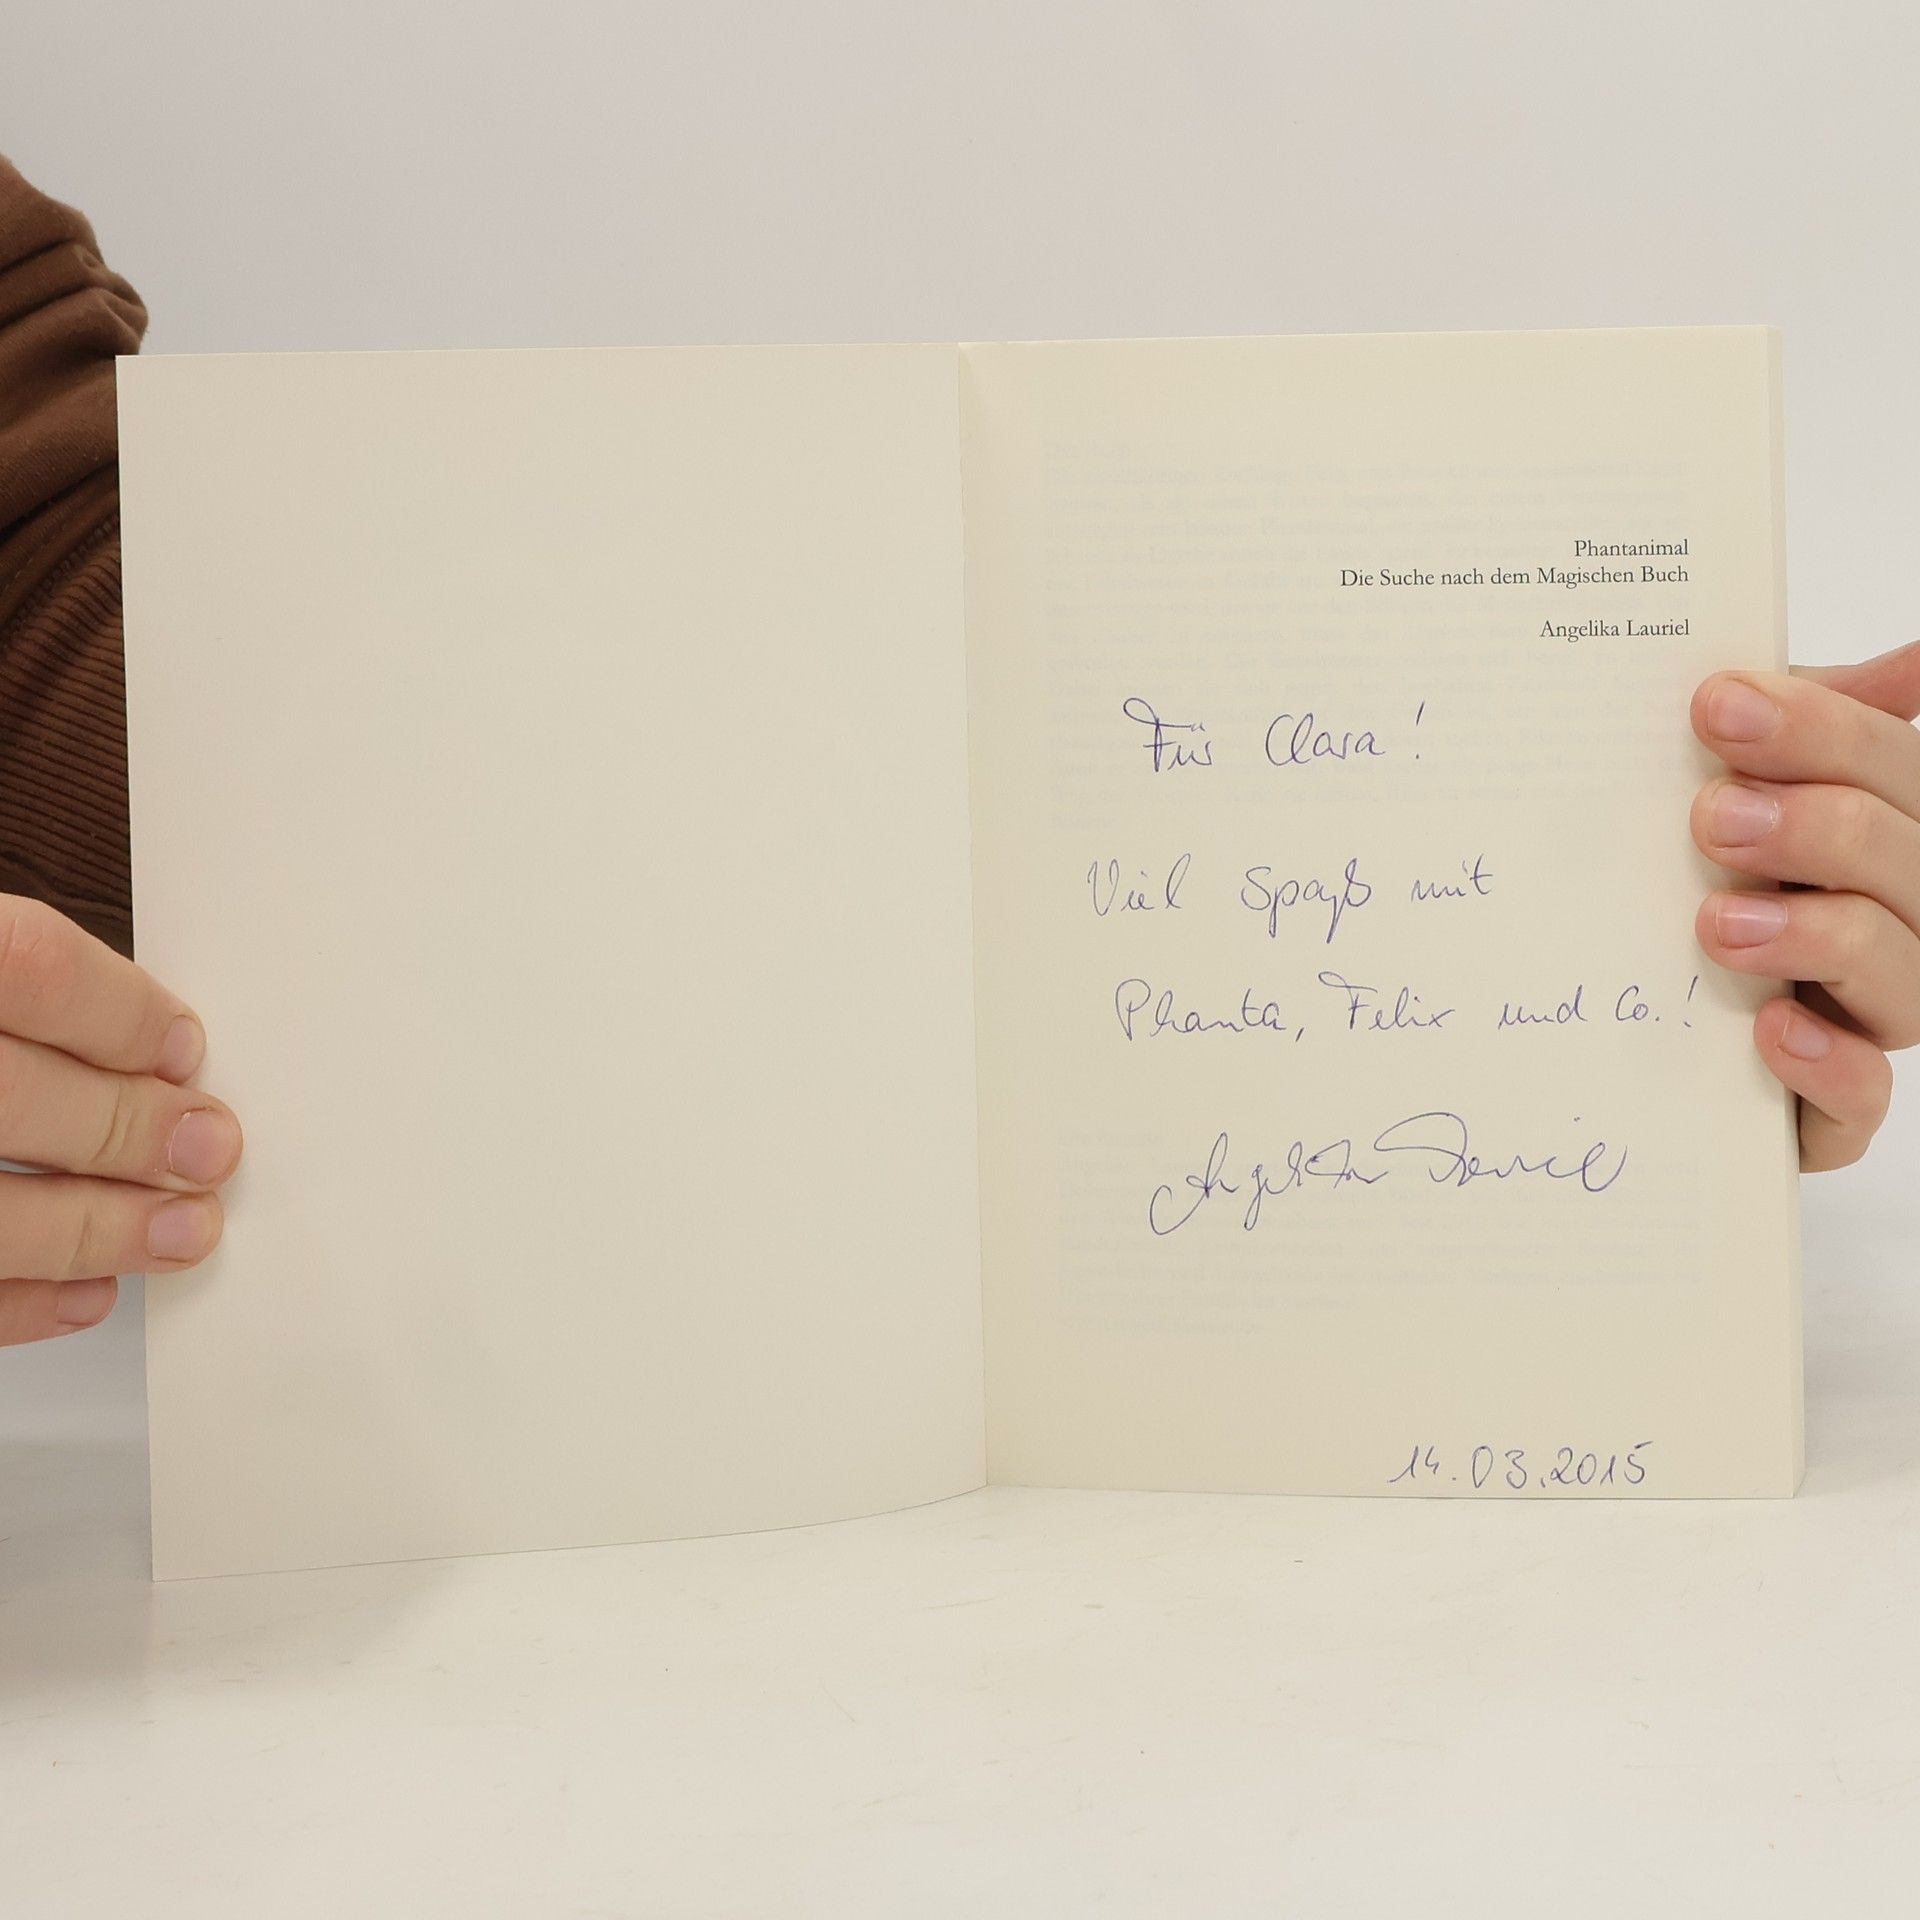 Phantanimal
Die Suche nach dem Magischen Buch
Angelika Lauriel
Für Clara!
Viel Spaß mit
Phanta, Felix und Co.!
Angelika Lauriel
14.03.2015